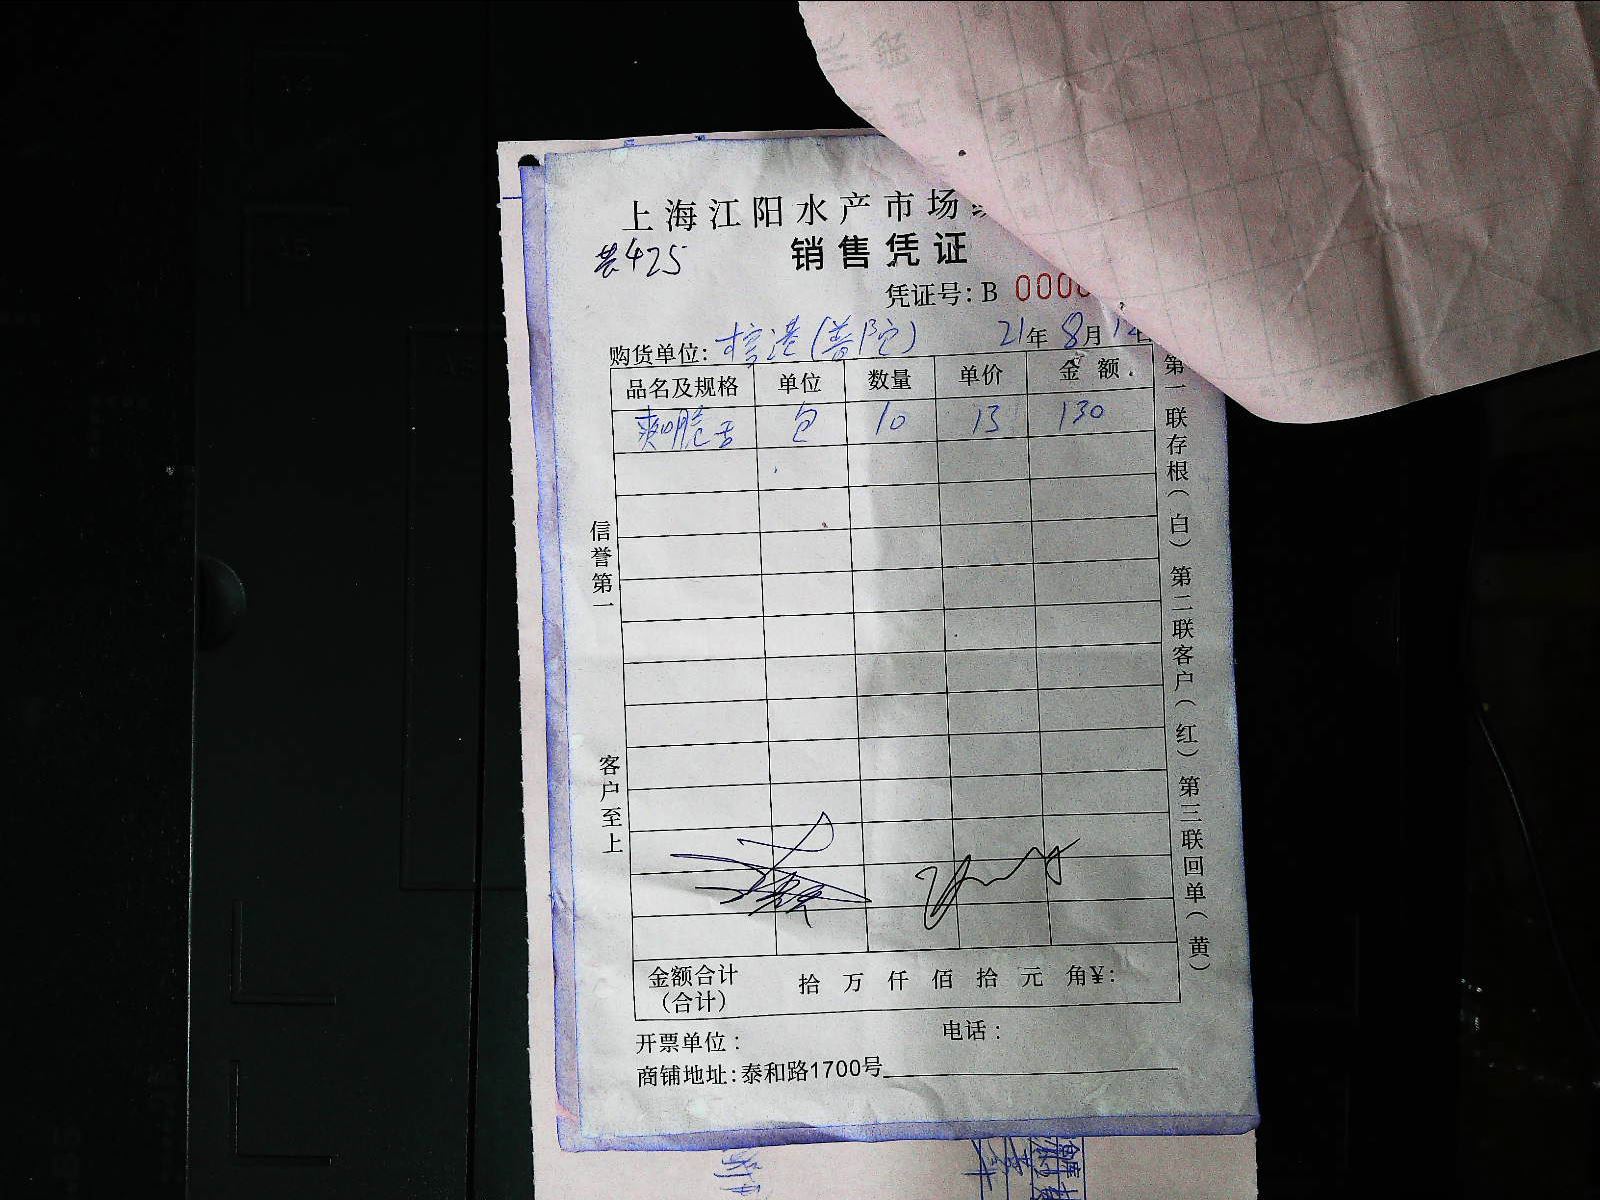 上海江阳水产市场
共425
销售凭证
凭证号: B 0000
购货单位: (普陀) 21年 8月
品名及规格 单位 数量 单价 金额
爽脆 包 10 13 130
信誉第一
客户至上
第一联存根(白) 第二联客户(红) 第三联回单(黄)
金额合计 拾 万 仟 佰 拾 元 角¥:
(合计)
开票单位: 电话:
商铺地址: 泰和路1700号